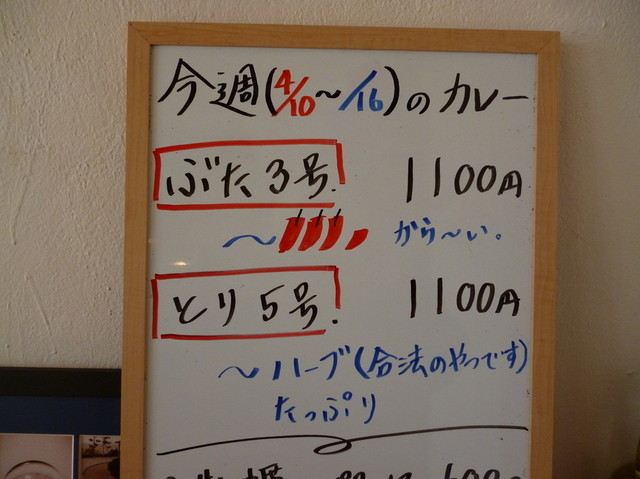 今週(4/10〜/16)のカレー
ぶた3号. 1100円
〜 から〜い。
とり5号. 1100円
〜ハーブ(合法のやつです)
たっぷり